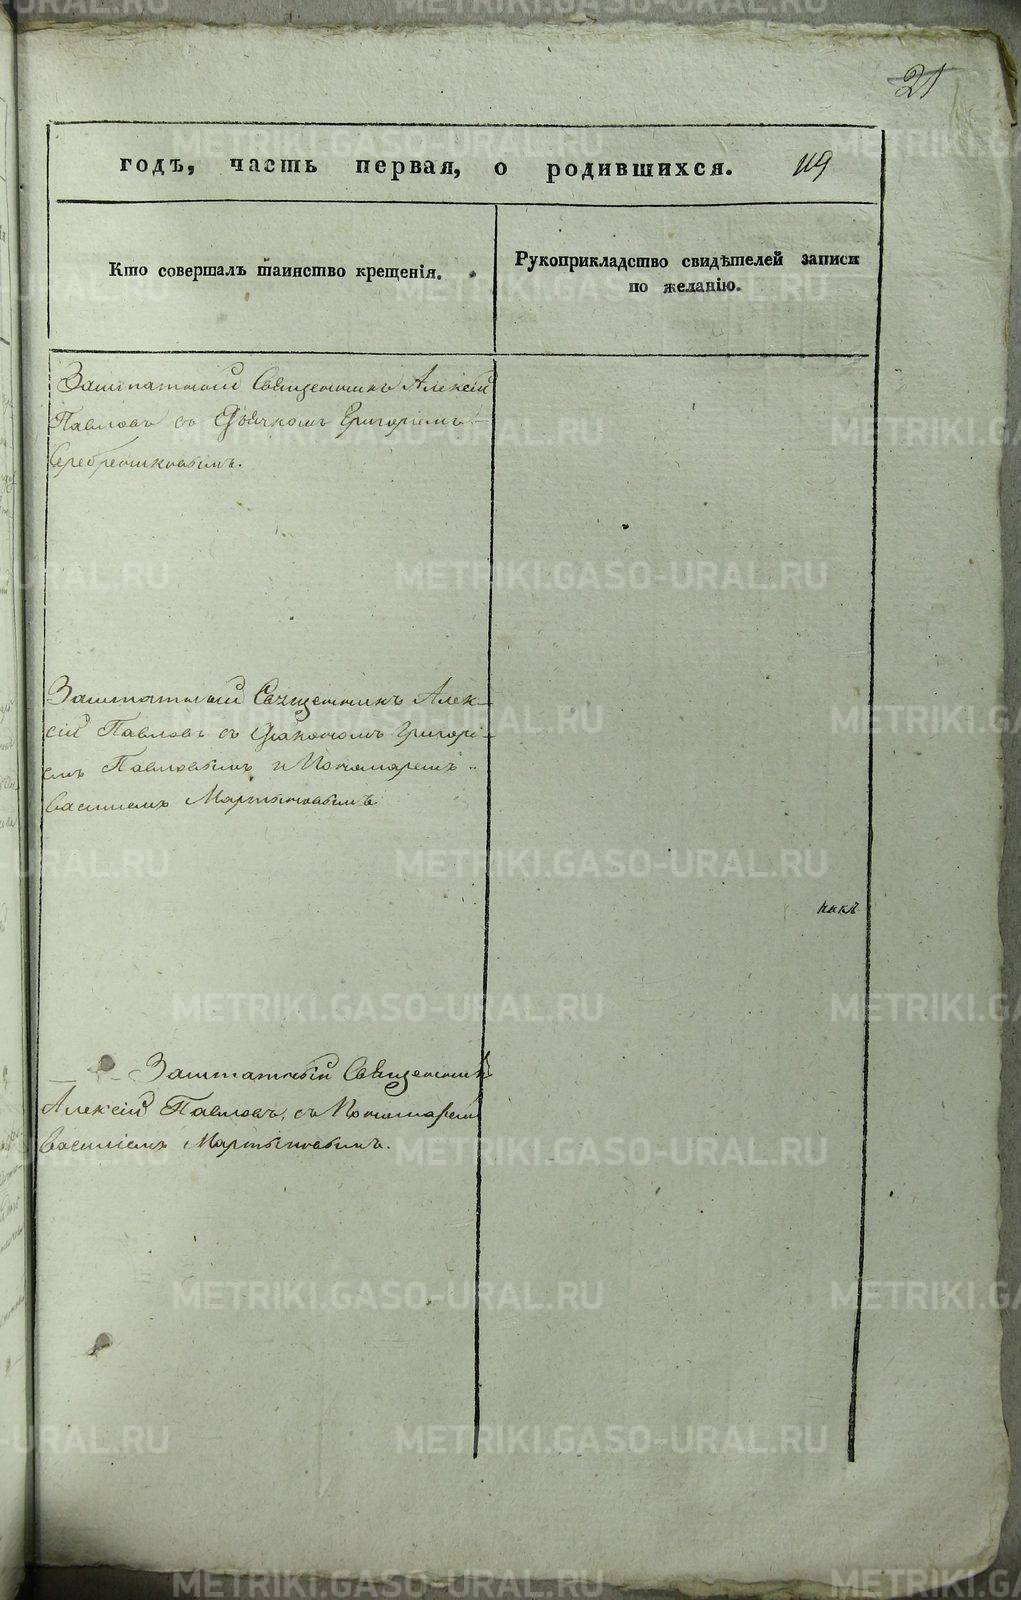 21
годъ, часть первая, о родившихся. 119
Кто совершалъ таинство крещенія.
Рукоприкладство свидѣтелей записи
по желанію.
Заштатный Священникъ Алексій
Павловъ съ Дьячкомъ Григоріемъ
Серебренниковымъ.
Заштатный Священникъ Алек-
сій Павловъ съ Діакономъ Григорі-
емъ Павловымъ и Пономаремъ
Василіемъ Мартыновымъ
Заштатный Священникъ
Алексій Павловъ, съ Пономаремъ
Василіемъ Мартыновымъ.
METRIKI.GASO-URAL.RU